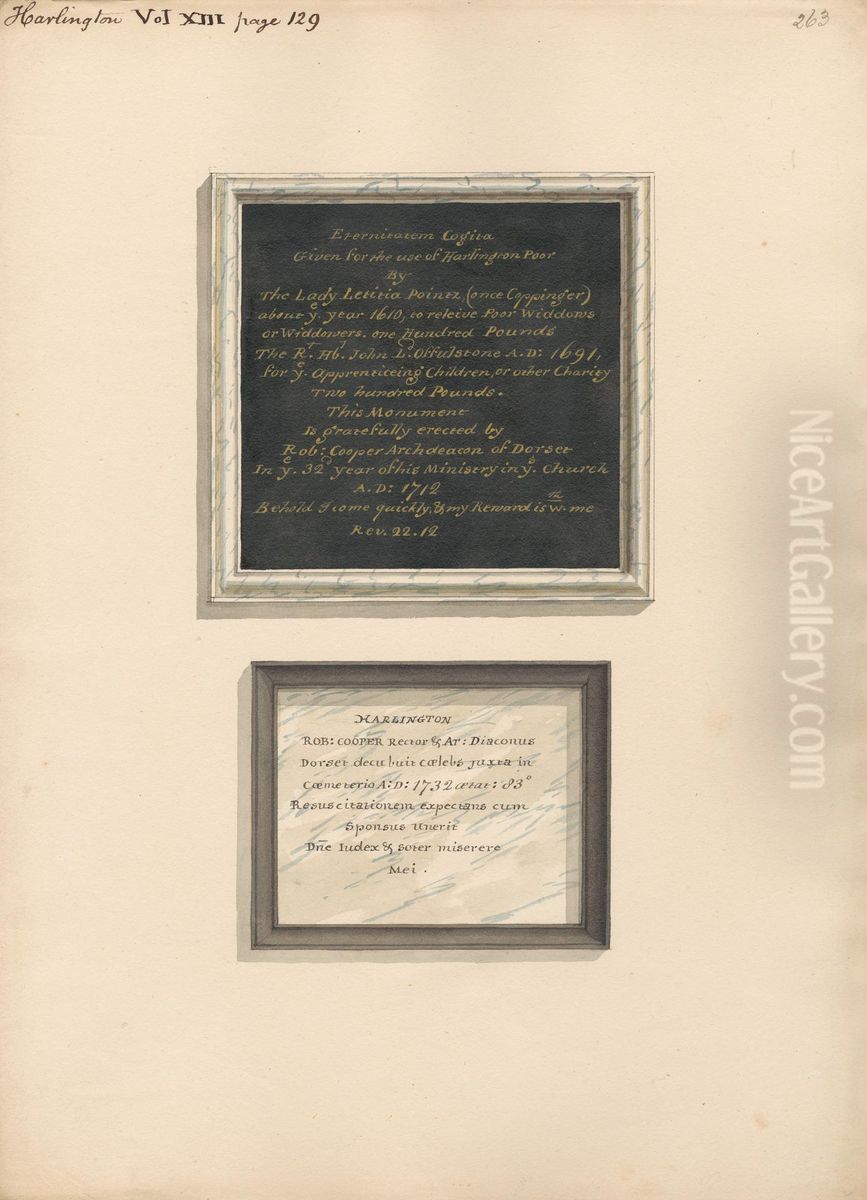 Harlington Vol XIII page 129
263
Eternitatem Cogita
Given for the use of Harlington Poor
By
The Lady Letitia Pointz, (once Coppinger)
about yᵉ. year 1610, to releive Poor Widdows
or Widdowers. one Hundred Pounds
The Rᵗ. Hᵇˡ. John Lᵈ. Offulstone A.D: 1691,
for yᵉ. Apprenticeing Children, or other Charity
Two hundred Pounds.
This Monument
Is gratefully erected by
Rob: Cooper Archdeacon of Dorset
In yᵉ. 32ᵈ year of his Ministry in yˢ. Church
A.D: 1712
Behold I come quickly, & my Reward is wᵗʰ. me
Rev. 22. 12
HARLINGTON
ROB: COOPER Rector & Ar: Diaconus
Dorset decubuit cœlebs juxta in
Cœmeterio A: D: 1732 ætat: 83°
Resuscitationem expectans cum
Sponsus Unerit
Dn̄e Iudex & soter miserere
Mei.
NiceArtGallery.com